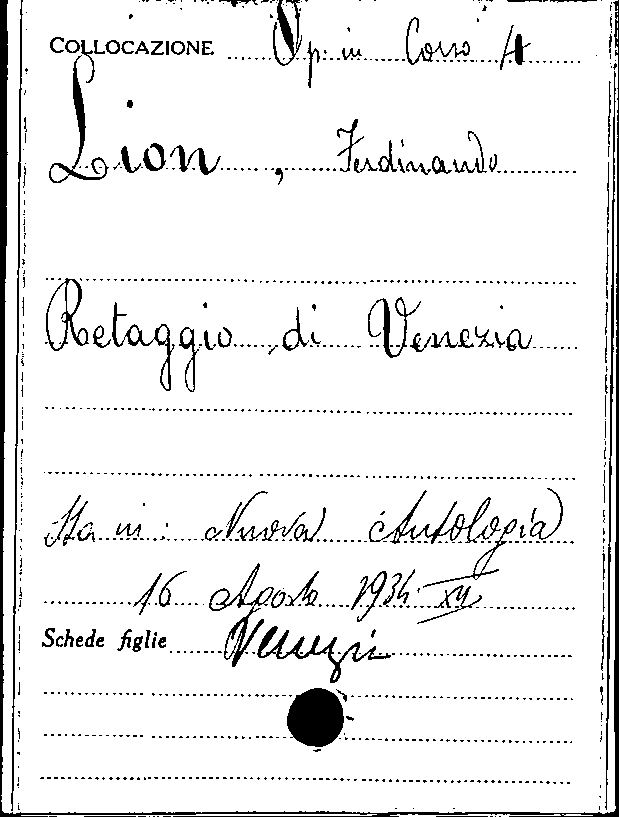 COLLOCAZIONE Op. in Corso 4
Lion, Ferdinando
Retaggio di Venezia
Sta in: Nuova Antologia
16 Agosto 1934. XII
Schede figlie Venezia